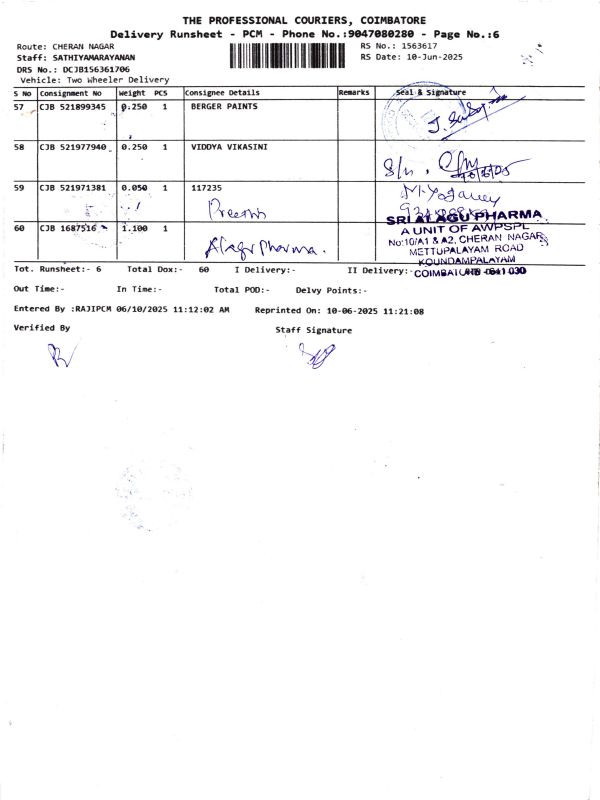 THE PROFESSIONAL COURIERS, COIMBATORE
Delivery Runsheet - PCM - Phone No.:9047080280 - Page No.:6
Route: CHERAN NAGAR RS No.: 1563617
Staff: SATHIYAMARAYANAN RS Date: 10-Jun-2025
DRS No.: DCJB156361706
Vehicle: Two Wheeler Delivery
S No Consignment No Weight PCS Consignee Details Remarks Seal & Signature
57 CJB 521899345 0.250 1 BERGER PAINTS
58 CJB 521977940 0.250 1 VIDDYA VIKASINI
59 CJB 521971381 0.050 1 117235
Preethi
60 CJB 1687516 1.100 1
Alagu Pharma.
SRI ALAGU PHARMA
A UNIT OF AWPSPL
No:10/A1 & A2, CHERAN NAGAR
METTUPALAYAM ROAD
KOUNDAMPALAYAM
COIMBATORE - 641 030
Tot. Runsheet:- 6 Total Dox:- 60 I Delivery:- II Delivery:-
Out Time:- In Time:- Total POD:- Delvy Points:-
Entered By :RAJIPCM 06/10/2025 11:12:02 AM Reprinted On: 10-06-2025 11:21:08
Verified By Staff Signature